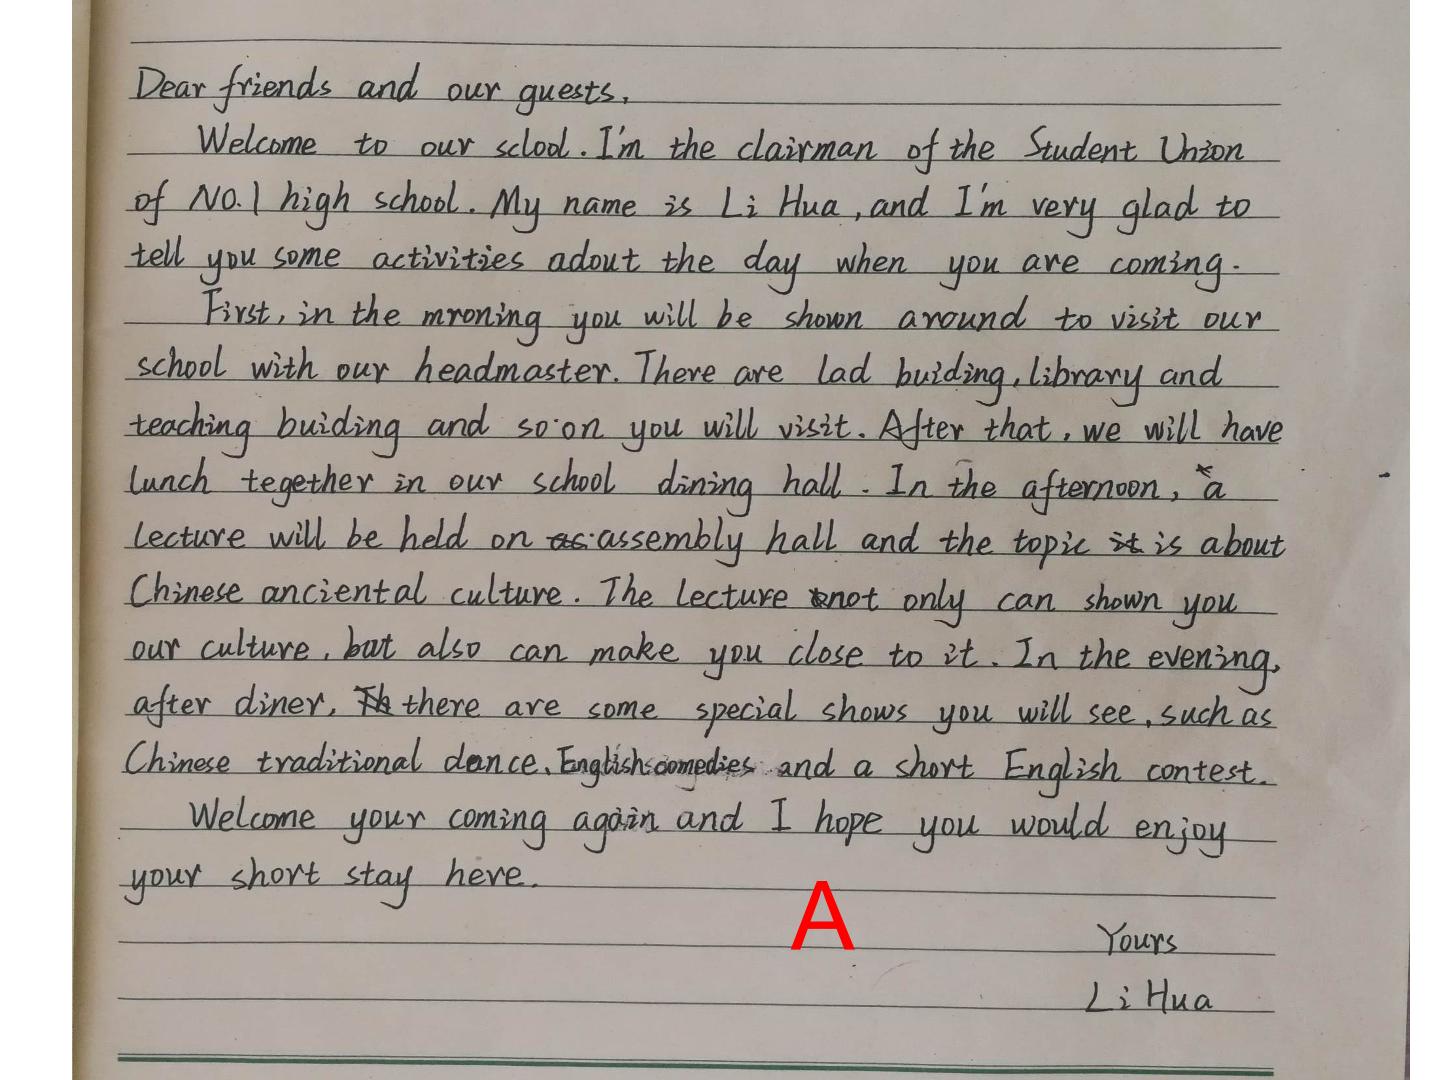 Dear friends and our guests,
Welcome to our sclool. I'm the clairman of the Student Union
of NO.1 high school. My name is Li Hua, and I'm very glad to
tell you some activities adout the day when you are coming.
First, in the mroning you will be shown around to visit our
school with our headmaster. There are lad buiding, library and
teaching buiding and so on you will visit. After that, we will have
lunch tegether in our school dining hall. In the afternoon, a
lecture will be held on as assembly hall and the topic it is about
Chinese anciental culture. The lecture not only can shown you
our culture, but also can make you close to it. In the evening,
after diner, Th there are some special shows you will see, such as
Chinese traditional dance, English comedies and a short English contest.
Welcome your coming again and I hope you would enjoy
your short stay here.
A
Yours
Li Hua